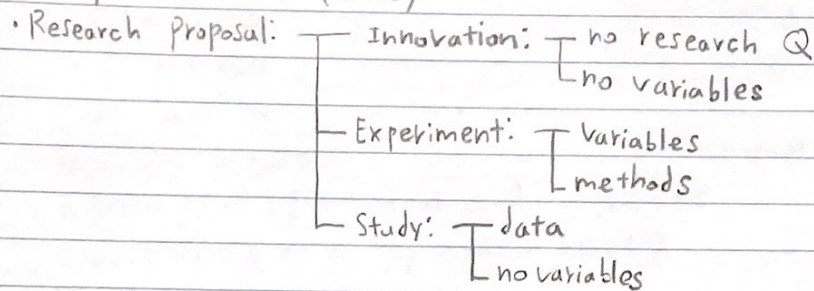 · Research Proposal: Innovation: no research Q
no variables
Experiment: Variables
methods
Study: data
no variables